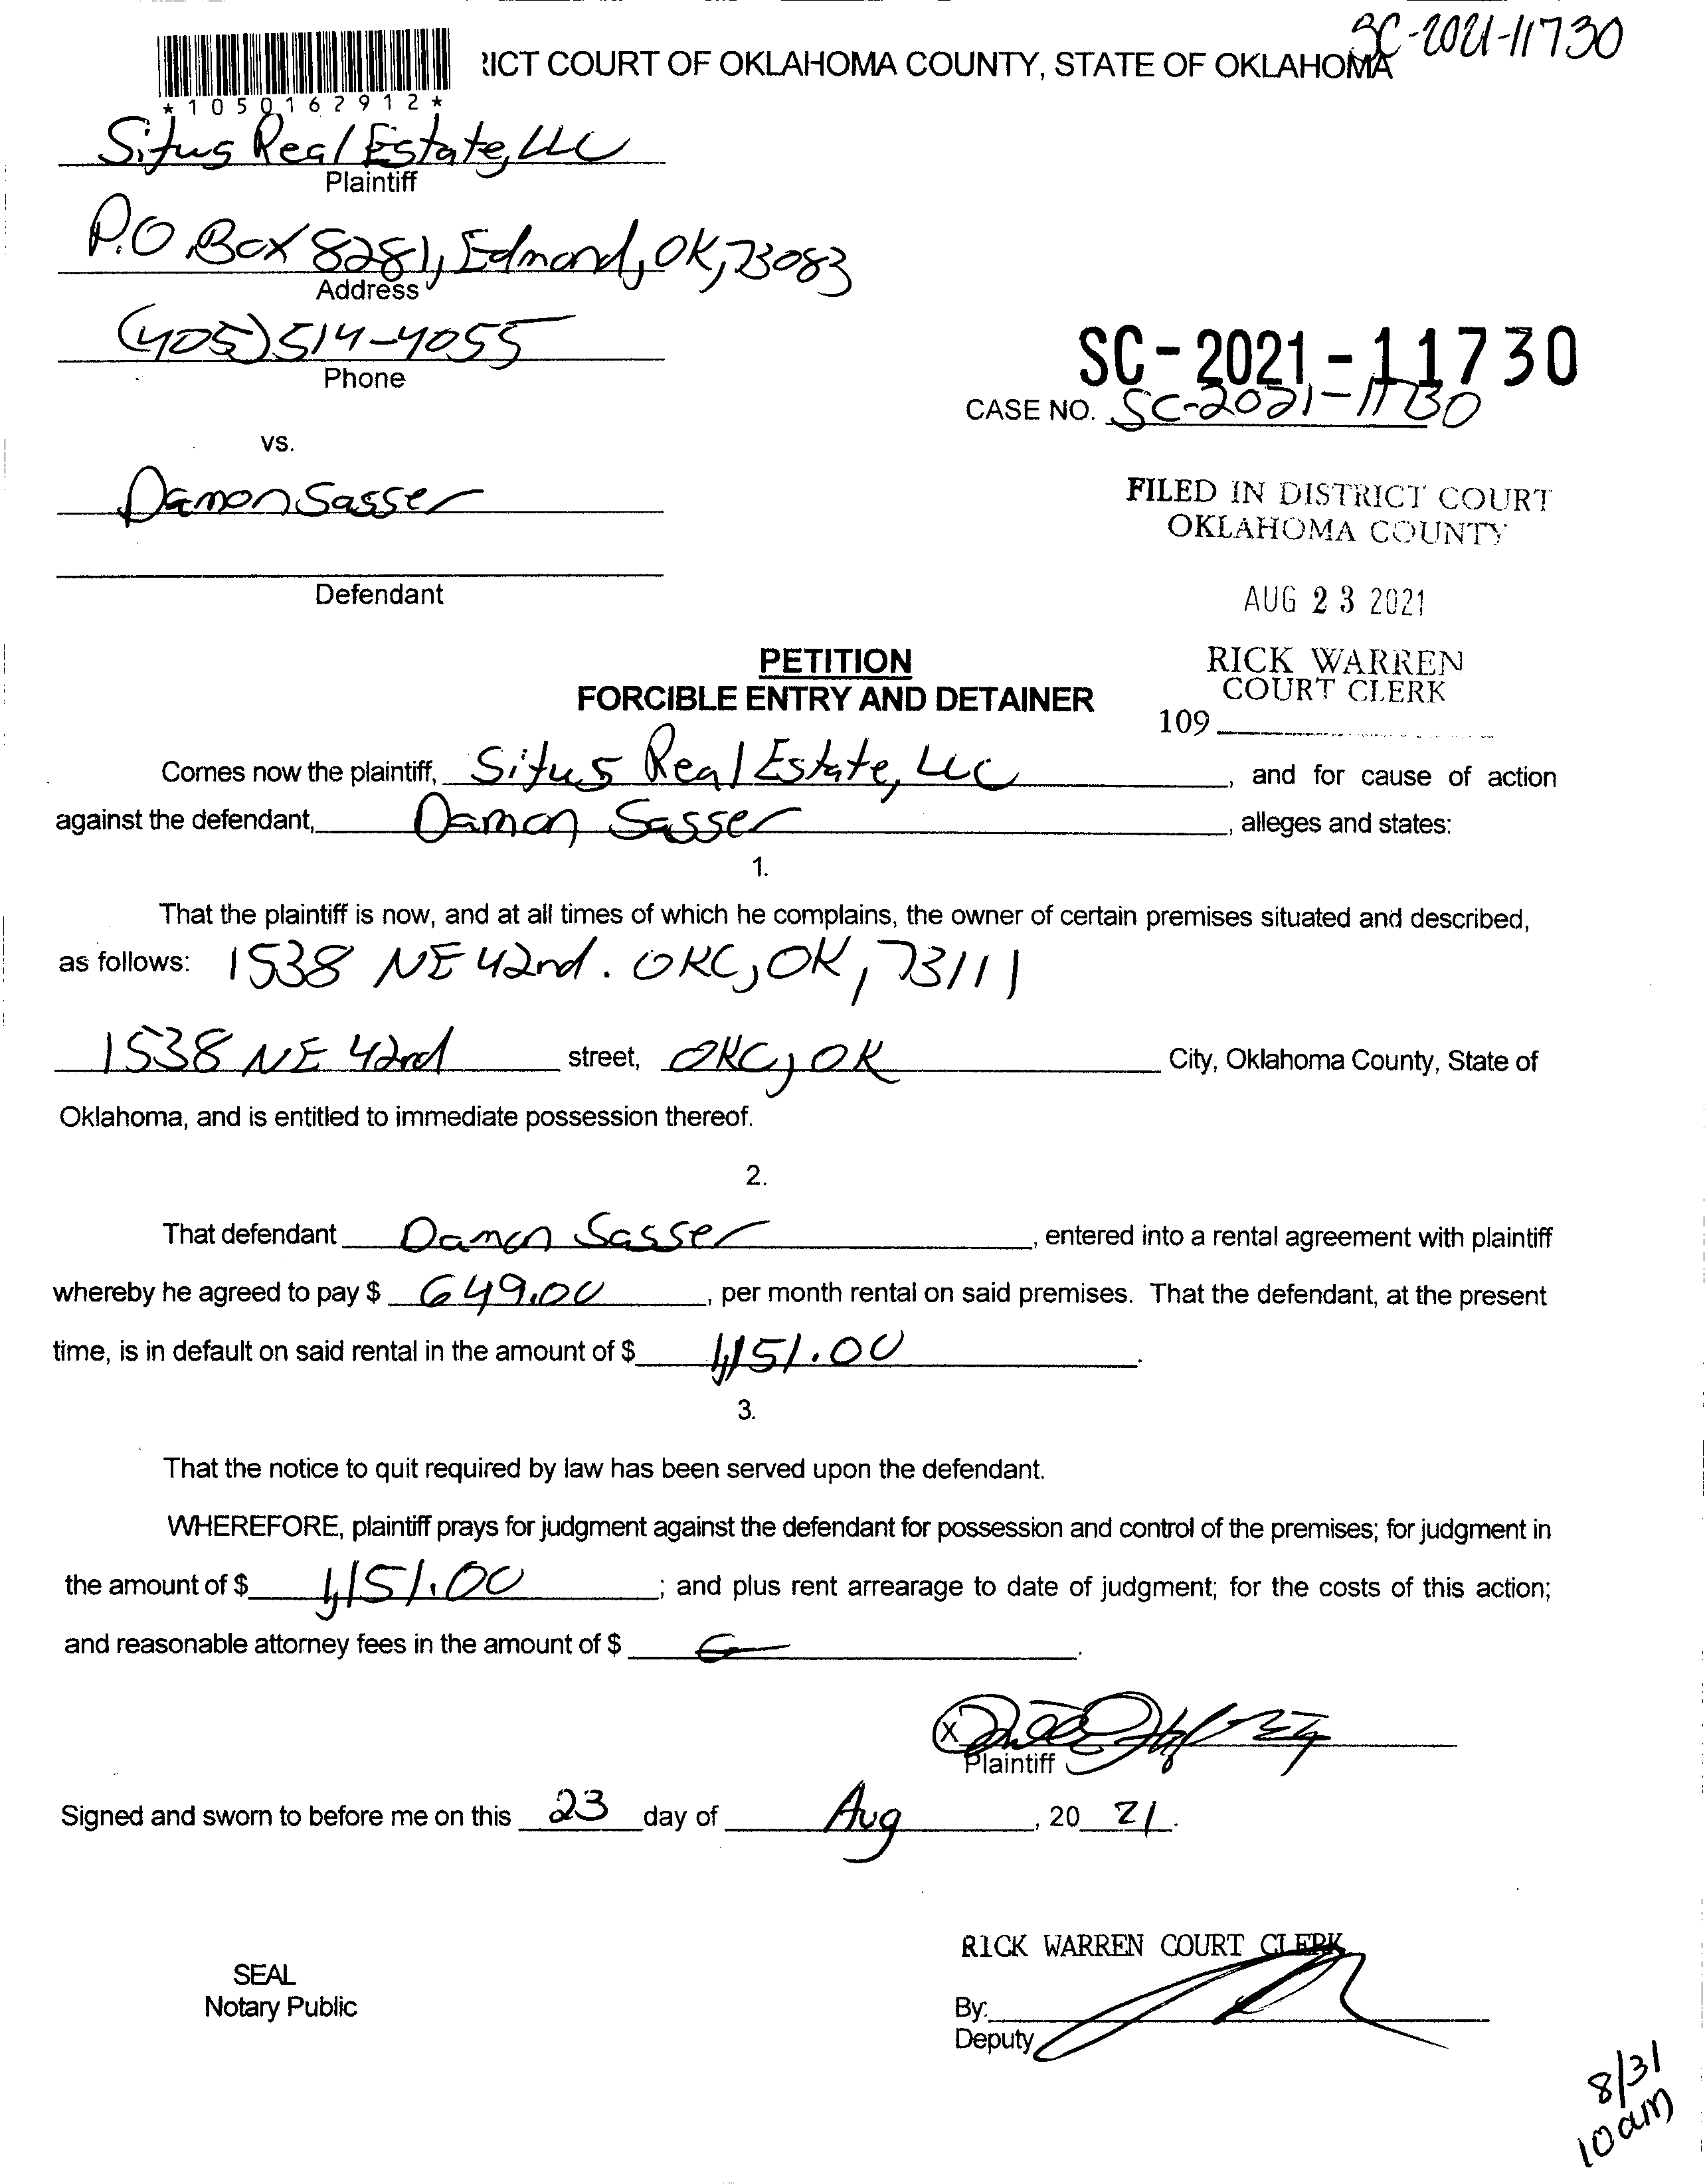 SC-2021-11730
RICT COURT OF OKLAHOMA COUNTY, STATE OF OKLAHOMA
*1050162912*
Situs Real Estate, LLC
Plaintiff
P.O Box 8281, Edmond, OK, 73083
Address
(405) 514-4055
Phone
SC-2021-11730
CASE NO. SC-2021-11730
vs.
Damon Sasser
Defendant
FILED IN DISTRICT COURT
OKLAHOMA COUNTY
AUG 23 2021
RICK WARREN
COURT CLERK
109
PETITION
FORCIBLE ENTRY AND DETAINER
Comes now the plaintiff, Situs Real Estate, LLC, and for cause of action
against the defendant, Damon Sasser, alleges and states:
1.
That the plaintiff is now, and at all times of which he complains, the owner of certain premises situated and described,
as follows: 1538 NE 42nd. OKC, OK, 73111
1538 NE 42nd street, OKC, OK City, Oklahoma County, State of
Oklahoma, and is entitled to immediate possession thereof.
2.
That defendant Damon Sasser, entered into a rental agreement with plaintiff
whereby he agreed to pay $ 649.00, per month rental on said premises. That the defendant, at the present
time, is in default on said rental in the amount of $ 1,151.00.
3.
That the notice to quit required by law has been served upon the defendant.
WHEREFORE, plaintiff prays for judgment against the defendant for possession and control of the premises; for judgment in
the amount of $ 1,151.00; and plus rent arrearage to date of judgment; for the costs of this action;
and reasonable attorney fees in the amount of $
X
Plaintiff
Signed and sworn to before me on this 23 day of Aug, 20 21.
RICK WARREN COURT CLERK
SEAL
Notary Public
By:
Deputy
8/31
10am